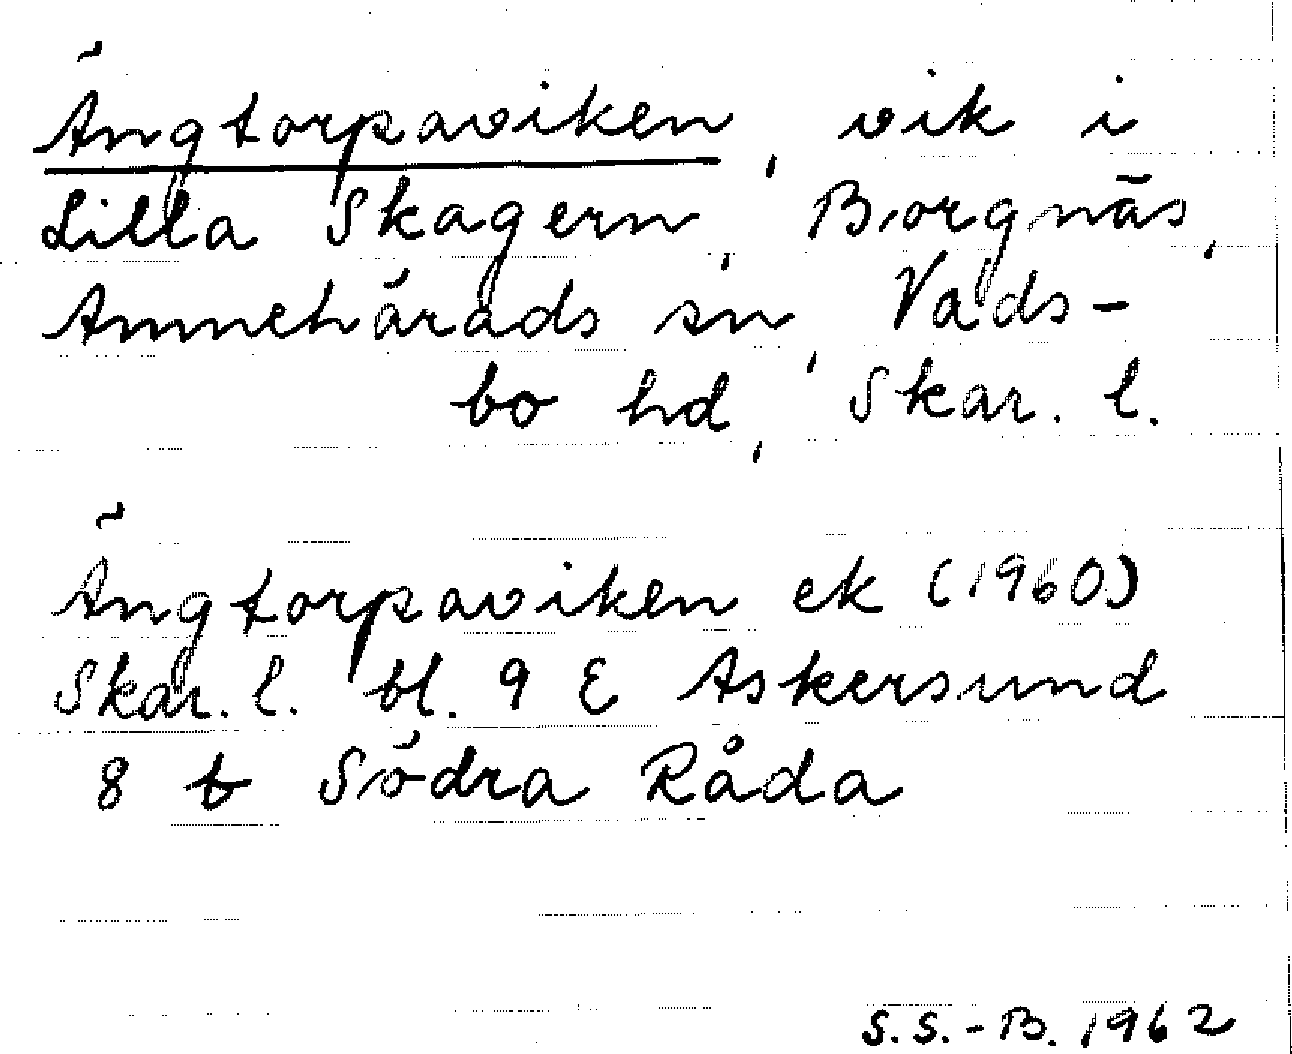 Ängtorpaviken, vik i
Lilla Skagern, Borgnäs,
Amnehärads sn, Vads-
bo hd, Skar. l.
Ängtorpaviken ek (1960)
Skar. l. bl. 9 E Askersund
8 b Södra Råda
S.S.-B. 1962